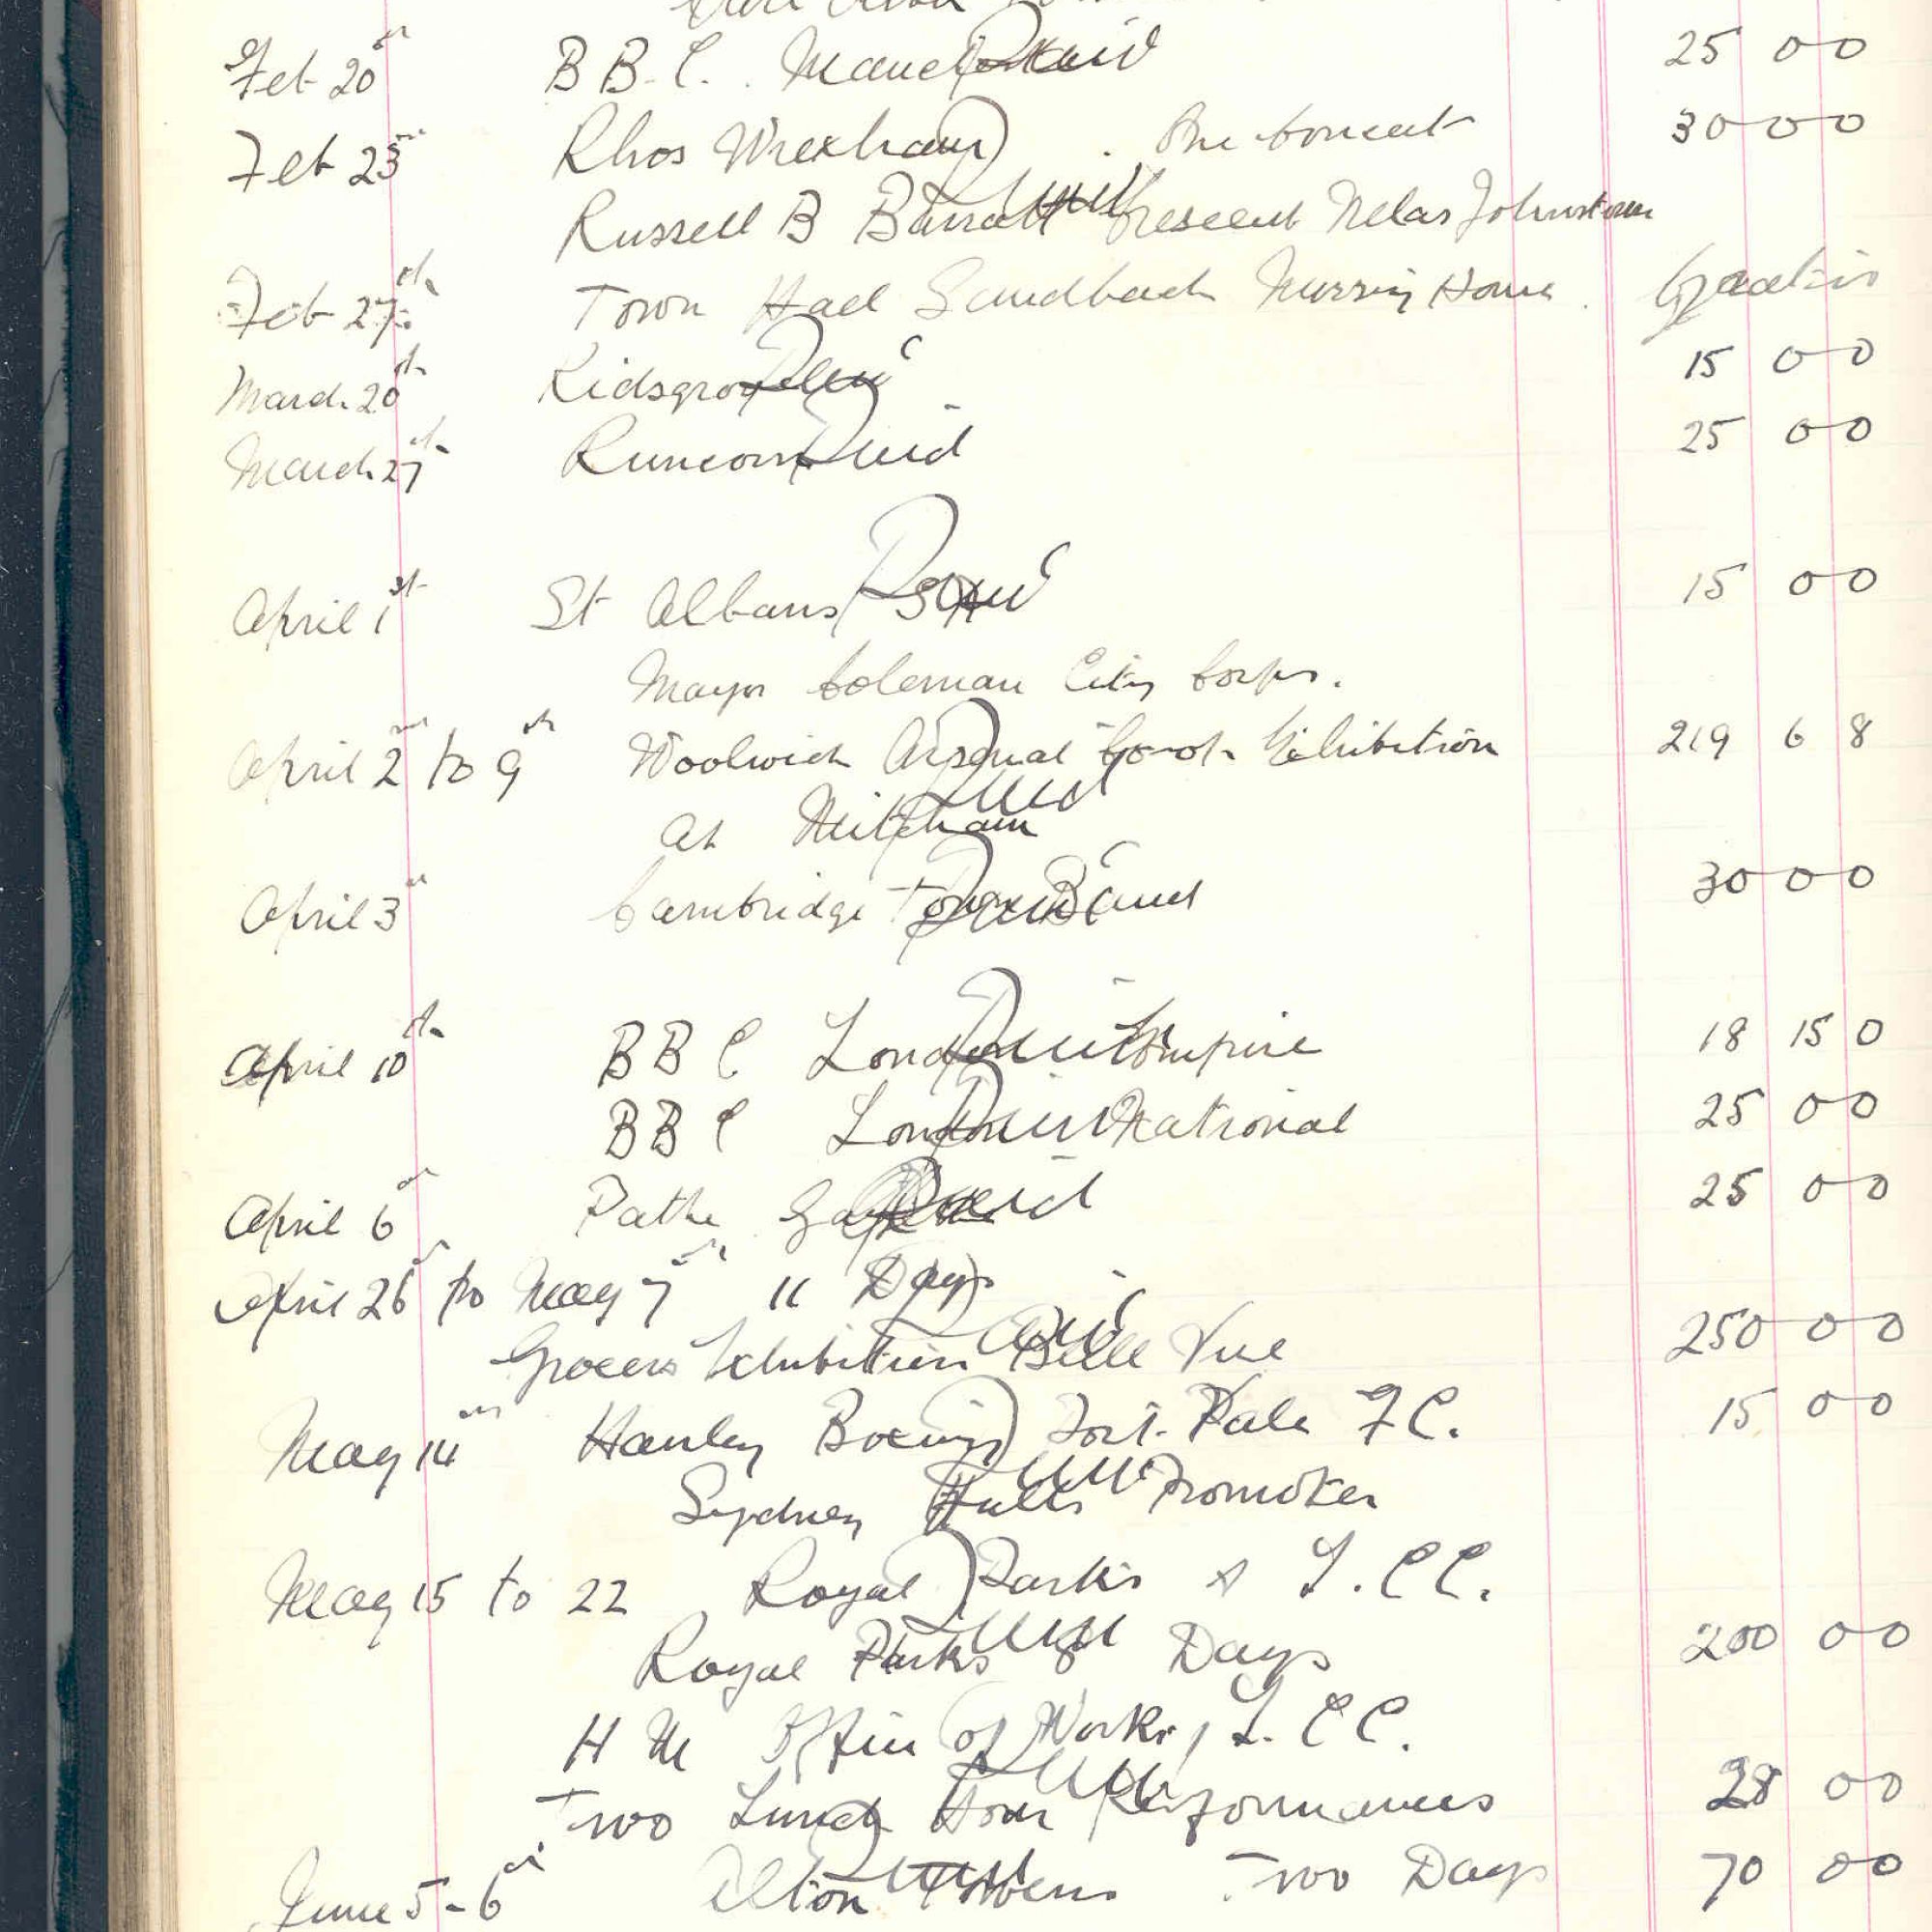 Feb 20th B B. C. Manch Paid 25 0 0
Feb 23rd Rhos Wrexham . One Concert 30 0 0
Russell B Barratt Paid Crescent Johnstown
Feb 27th Town Hall Sandbach Nursing Home . Gratis
March 20th Kidsgrove Paid 15 0 0
March 27th Runcorn Paid 25 0 0
April 1st St Albans Paid 15 0 0
Mayor Coleman City Corps.
April 2nd to 9th Woolwich Arsenal Co-op. Exhibition 219 6 8
At Mitcham Paid
April 3rd Cambridge Town Band Paid 30 0 0
April 10th B B C London Paid Empire 18 15 0
B B C London Paid National 25 0 0
April 6th Pathe Gazette Paid 25 0 0
April 26th to May 7th 11 Days
Grocers Exhibition Paid Belle Vue 250 0 0
May 14th Hanley Boxing Port Vale F C. 15 0 0
Sydney Hulls Paid Promoter
May 15 to 22 Royal Parks & L. C C.
Royal Parks Paid 8 Days 200 0 0
H M Office of Works, L. C C.
Two Lunch Hour Paid Performances 28 0 0
June 5-6th Alton Towers Paid Two Days 70 0 0